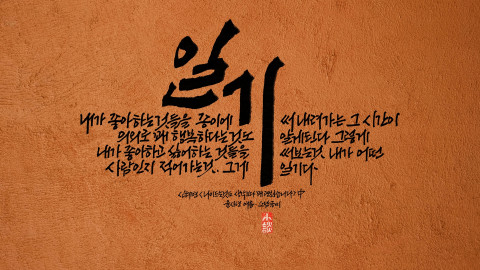 일기
내가 좋아하는것들을 종이에 써 내려가는 그 시간이
의외로 꽤 행복하다는것도 알게된다. 그렇게
내가 좋아하고 싫어하는 것들을 써보는것, 내가 어떤
사람인지 적어가는것.. 그게 일기다.